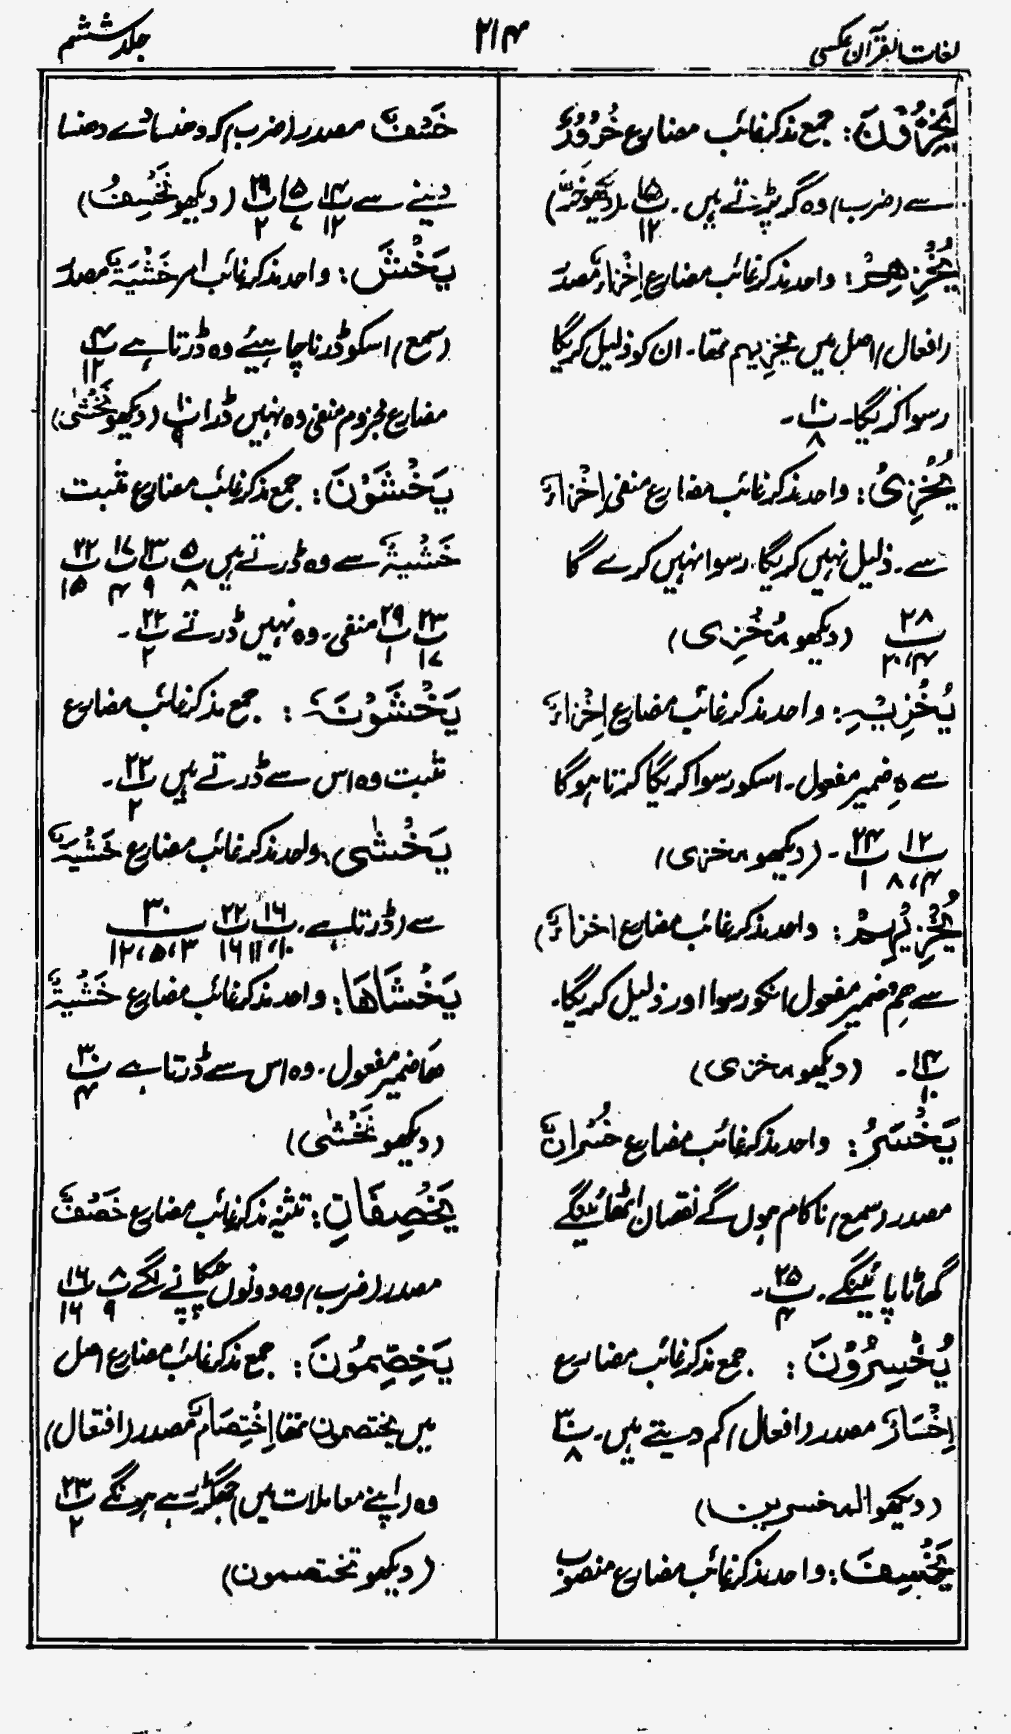 لغات القرآن عکسی
۲۱۴
جلد ششم
یَخِرُّوْنَ: جمع مذکر غائب مضارع خُرُوْرٌ
سے (ضرب) وہ گر پڑتے ہیں۔ پ ۱۵/۱۲ (دیکھو خَرَّ)
یُخْزِهِمْ: واحد مذکر غائب مضارع اِخْزَاءٌ مصدر
(افعال) اصل میں یخزیہم تھا۔ ان کو ذلیل کریگا
رسوا کریگا۔ پ ۱۰/۸۔
یُخْزِیُ: واحد مذکر غائب مضارع منفی اِخْزَاءٌ
سے۔ ذلیل نہیں کریگا، رسوا نہیں کرے گا
پ ۲۸/۲۰،۴ (دیکھو مُخْزِی)
یُخْزِیْہِ: واحد مذکر غائب مضارع اِخْزَاءٌ
سے ہِ ضمیر مفعول۔ اسکو رسوا کریگا کرتا ہوگا
پ ۱۲/۸،۴ پ ۲۴/۱۔ (دیکھو مخزی)
یُخْزِیْہِمْ: واحد مذکر غائب مضارع اخزاءٌ)
سے ھِم ضمیر مفعول انکو رسوا اور ذلیل کریگا۔
پ ۱۴/۱۰۔ (دیکھو مخزی)
یَخْسَرُ: واحد مذکر غائب مضارع خُسْرانٌ
مصدر (سمع) ناکام ہوں گے نقصان اٹھائینگے
گھاٹا پائینگے۔ پ ۲۵/۴۔
یُخْسِرُوْنَ: جمع مذکر غائب مضارع
اِخْسَارٌ مصدر (افعال) کم دیتے ہیں۔ پ ۳۰/۸
(دیکھو المخسرین)
یَخْسِفَ: واحد مذکر غائب مضارع منصوب
خَسْفٌ مصدر (ضرب) کہ دھنسا دے دھنسا
دینے سے پ ۱۴/۱۲ پ ۱۵/۷ پ ۲۹/۲ (دیکھو نَخْسِفُ)
یَخْشَ: واحد مذکر غائب امر خَشْیَةٌ مصدر
(سمع) اسکو ڈرنا چاہیئے وہ ڈرتا ہے پ ۴/۱۲
مضارع مجزوم منفی وہ نہیں ڈرا پ ۱۰/۹ (دیکھو نَخْشٰی)
یَخْشَوْنَ: جمع مذکر غائب مضارع مثبت
خَشْیَةٌ سے وہ ڈرتے ہیں پ ۵/۸ پ ۱۳/۹ پ ۱۷/۴ پ ۲۲/۱۵
پ ۲۳/۱۷ پ ۲۹/۱ منفی۔ وہ نہیں ڈرتے پ ۲۲/۲۔
یَخْشَوْنَہٗ: جمع مذکر غائب مضارع
مثبت وہ اس سے ڈرتے ہیں پ ۲۲/۲۔
یَخْشٰی: واحد مذکر غائب مضارع خَشْیَةٌ
سے (ڈرتا ہے۔ پ ۱۶/۱۱،۱۰ پ ۲۲/۱۶ پ ۳۰/۱۲،۵،۳
یَخْشَاهَا: واحد مذکر غائب مضارع خَشْیَةٌ
ھَا ضمیر مفعول۔ وہ اس سے ڈرتا ہے پ ۳۰/۴
(دیکھو نَخْشٰی)
یَخْصِفَانِ: تثنیہ مذکر غائب مضارع خَصْفٌ
مصدر (ضرب) وہ دونوں چپکانے لگے پ ۸/۹ پ ۱۶/۱۶
یَخِصِّمُوْنَ: جمع مذکر غائب مضارع اصل
میں یختصمون تھا اِخْتِصَامٌ مصدر (افتعال)
وہ (اپنے معاملات میں) جھگڑ رہے ہونگے پ ۲۳/۲
(دیکھو تختصمون)